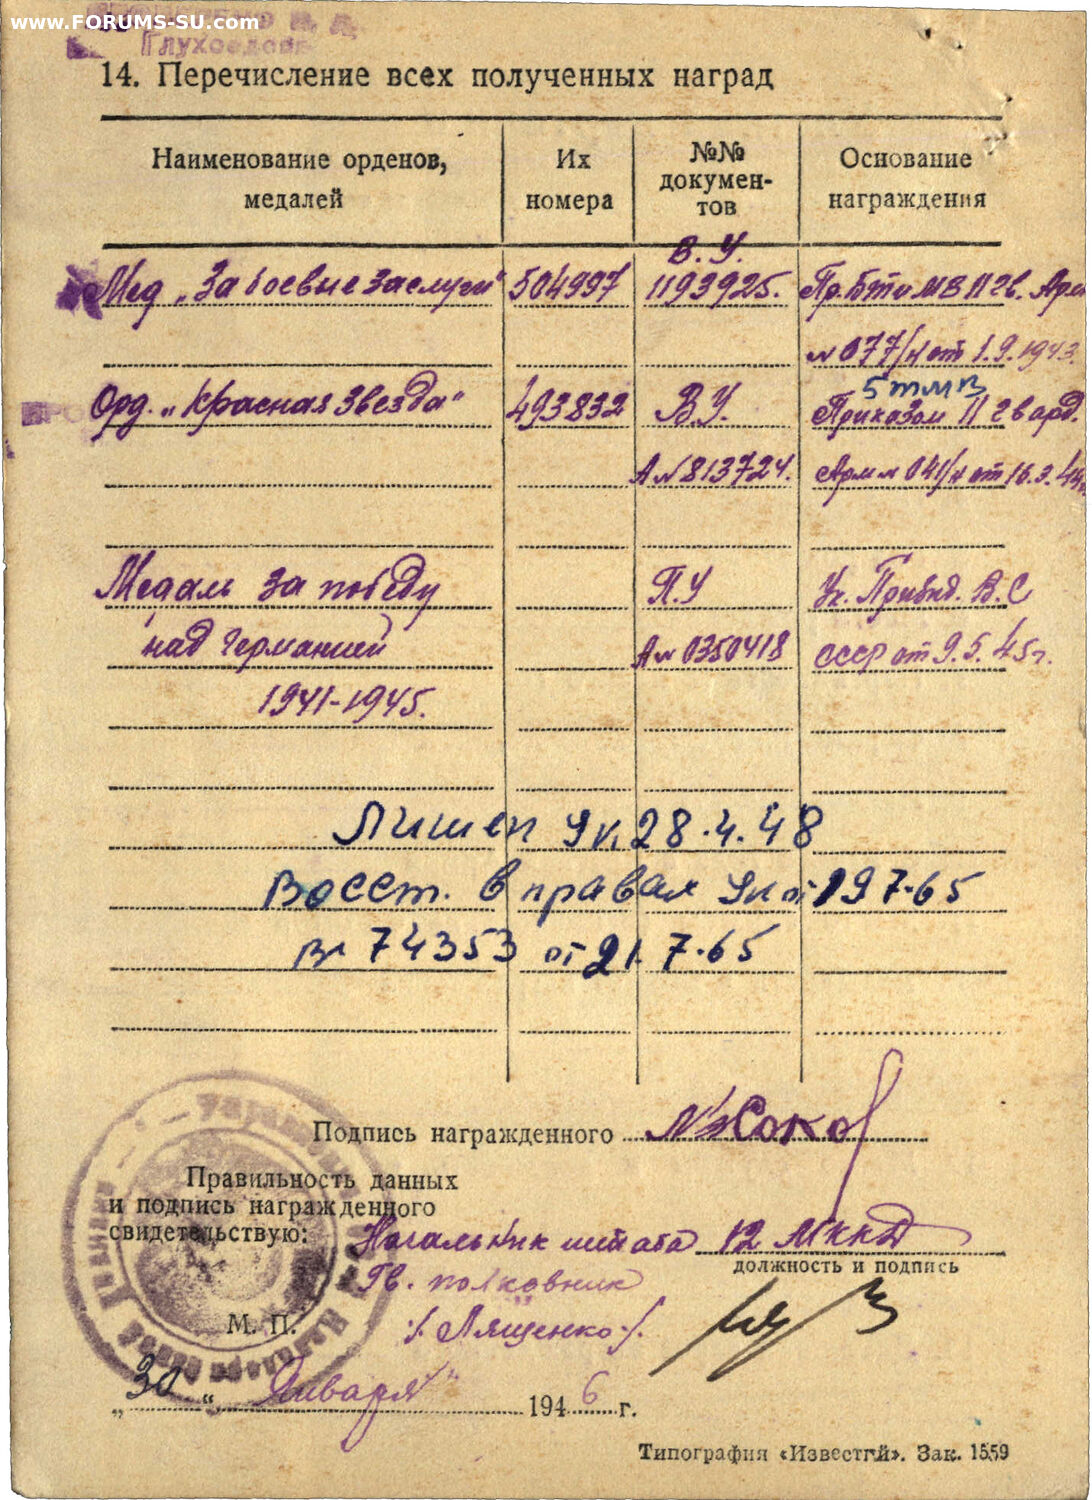 www.FORUMS-SU.com
14. Перечисление всех полученных наград
Наименование орденов, медалей
Их номера
№№ документов
Основание награждения
В. У.
Мед „За боевые заслуги" 504997 1193925. Пр. БТ и МВ 11 гв. Арм
№ 077/н от 1.9.1943.
5 тмв
Орд. „Красная Звезда" 493832 В.У. Приказом 11 гвард.
А № 813724. Арм № 041/н от 16.3.44
Медаль За победу П.У Ук. През. В.С
над Германией А № 0350418 СССР от 9.5.45г.
1941-1945.
Лишен Ук 28.4.48
Восст. в правах Ук от 19 7.65
74353 от 21.7.65
Подпись награжденного
Правильность данных
и подпись награжденного
свидетельствую: Начальник штаба 12
должность и подпись
Гв. полковник
М. П. /Лященко/.
„30" Января 1946 г.
Типография «Известий». Зак. 1559